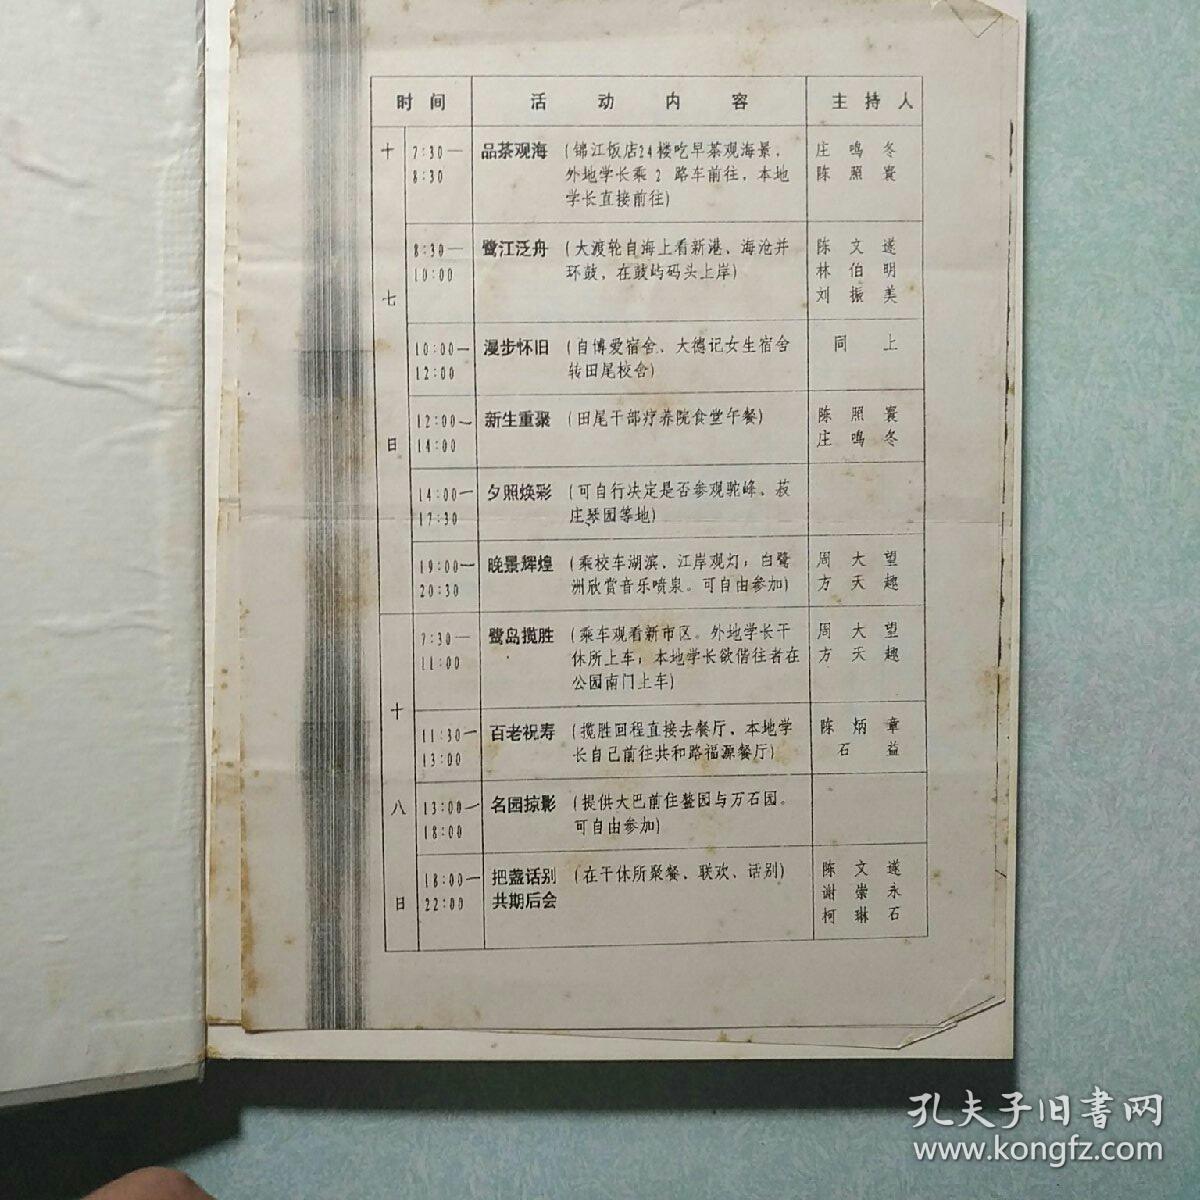 时间 活动内容 主持人
十七日
7:30—8:30 品茶观海 (锦江饭店24楼吃早茶观海景， 庄鸣冬
外地学长乘2路车前往，本地 陈照寰
学长直接前往)
8:30—10:00 鹭江泛舟 (大渡轮自海上看新港、海沧并 陈文遂
环鼓，在鼓屿码头上岸) 林伯明
刘振美
10:00—12:00 漫步怀旧 (自博爱宿舍、大德记女生宿舍 同上
转田尾校舍)
12:00—14:00 新生重聚 (田尾干部疗养院食堂午餐) 陈照寰
庄鸣冬
14:00—17:30 夕照焕彩 (可自行决定是否参观驼峰、菽
庄琴园等地)
19:00—20:30 晚景辉煌 (乘校车湖滨、江岸观灯；白鹭 周大望
洲欣赏音乐喷泉。可自由参加) 方天趣
十八日
7:30—11:00 鹭岛揽胜 (乘车观看新市区。外地学长干 周大望
休所上车；本地学长欲偕往者在 方天趣
公园南门上车)
11:30—13:00 百老祝寿 (揽胜回程直接去餐厅、本地学 陈炳章
长自己前往共和路福源餐厅) 石益
13:00—18:00 名园掠影 (提供大巴前住鳌园与万石园。
可自由参加)
18:00—22:00 把盏话别 (在干休所聚餐、联欢、话别) 陈文遂
共期后会 谢崇永
柯琳石
孔夫子旧書网
www.kongfz.com